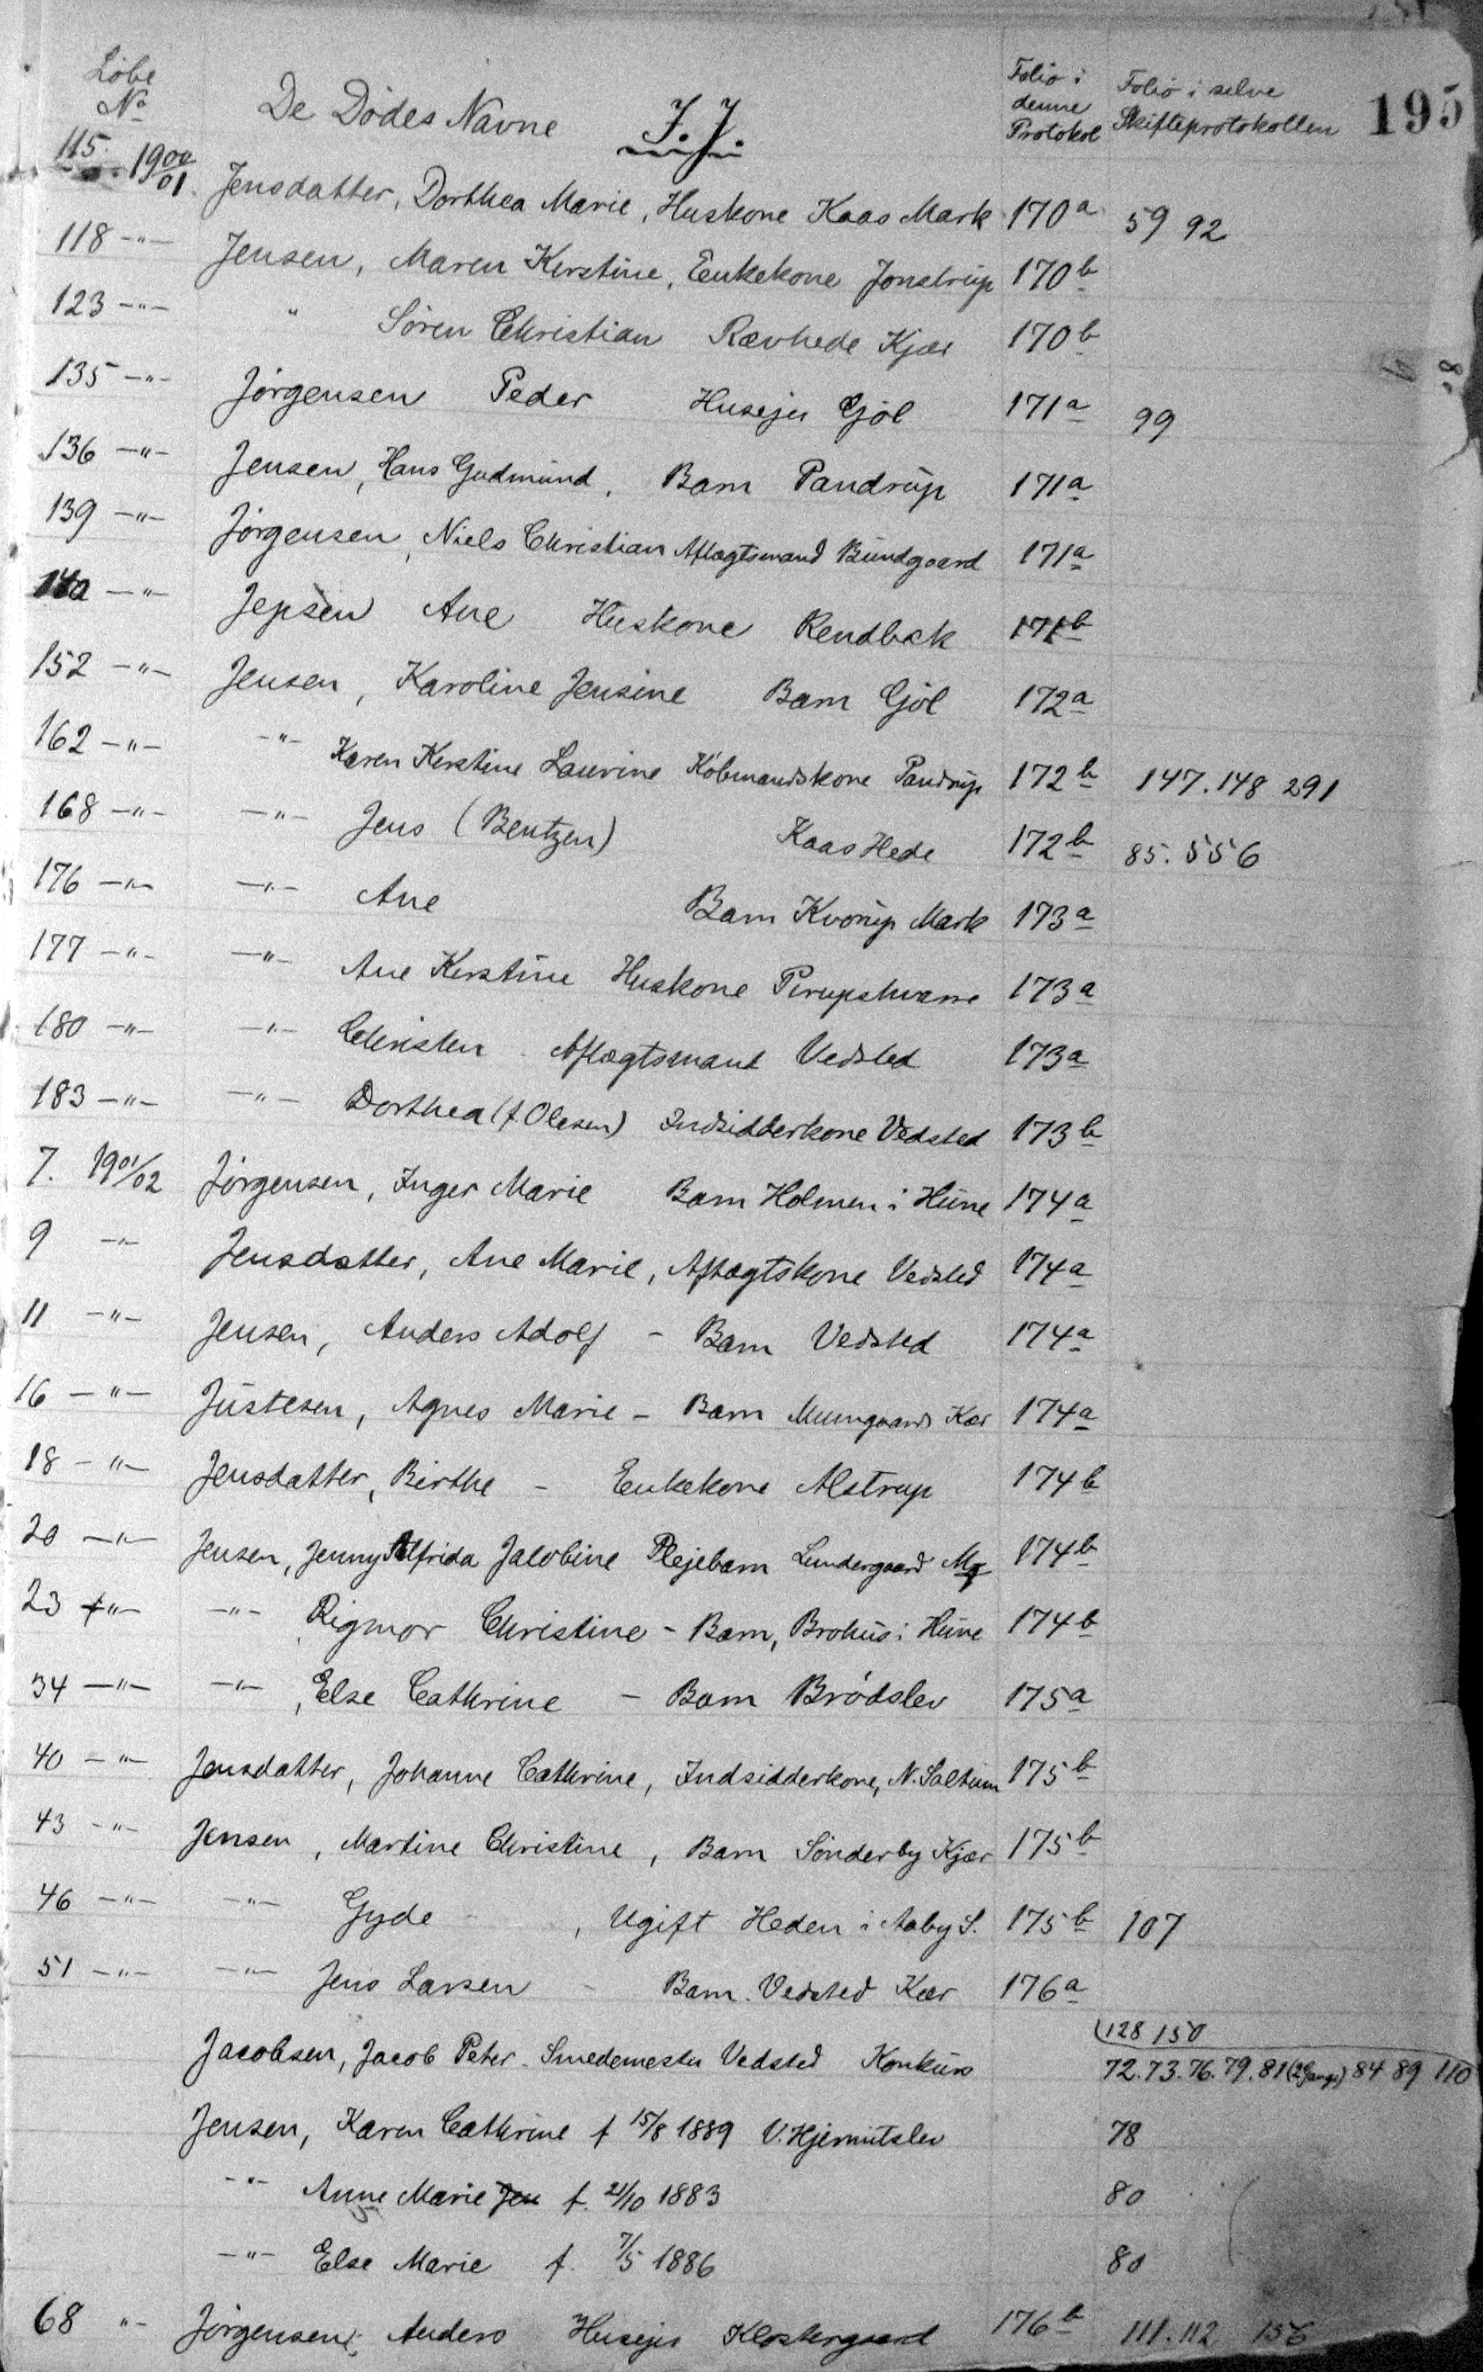 195
Löbe No De Dödes Navne J. J. Folio i denne Protokol Folio i selve Skifteprotokollen
115. 1900/01 Jensdatter, Dorthea Marie, Huskone Kaas Mark 170a 59 92
118 -"- Jensen, Maren Kirstine, Enkekone Jonstrup 170b
123 -"- " Sören Christian Ravhede Kjær 170b
135 -"- Jörgensen Peder Husejer Gjöl 171a 99
136 -"- Jensen, Hans Gudmund, Barn Pandrup 171a
139 -"- Jörgensen, Niels Christian Aftægtsmand Bundgaard 171a
140 -"- Jepsen Ane Huskone Rendbæk 171b
152 -"- Jensen, Karoline Jensine Barn Gjöl 172a
162 -"- -"- Karen Kirstine Laurine Köbmandskone Pandrup 172b 147. 148 291
168 -"- -"- Jens (Bentzen) Kaas Hede 172b 85. 556
176 -"- -"- Ane Barn Kvorup Mark 173a
177 -"- -"- Ane Kirstine Huskone 173a
180 -"- -"- Christen Aftægtsmand Vedsted 173a
183 -"- -"- Dorthea (f Olesen) Indsidderkone Vedsted 173b
7. 1901/02 Jörgensen, Inger Marie Barn Holmen i Hune 174a
9 -"- Jensdatter, Ane Marie, Aftægtskone Vedsted 174a
11 -"- Jensen, Anders Adolf - Barn Vedsted 174a
16 -"- Justesen, Agnes Marie - Barn Kær 174a
18 -"- Jensdatter, Birthe - Enkekone Alstrup 174b
20 -"- Jensen, Jenny Alfrida Jacobine Plejebarn Lundergaard Mq 174b
23 -"- -"- Rigmor Christine - Barn, Brohus i Hune 174b
34 -"- -"- , Else Cathrine - Barn Brödslev 175a
40 -"- Jensdatter, Johanne Cathrine, Indsidderkone, N. Saltum 175b
43 -"- Jensen, Martine Christine, Barn Sönderby Kjær 175b
46 -"- -"- Gyde - , Ugift Heden i Aaby S. 175b 107
51 -"- -"- Jens Larsen - Barn. Vedsted Kær 176a
128 150
Jacobsen, Jacob Peter. Smedemester Vedsted Konkurs 72. 73. 76. 79. 81 (2 Gange) 84 89 110
Jensen, Karen Cathrine f 15/8 1889 V. Hjermitslev 78
-"- Anne Marie Jen f. 21/10 1883 80
-"- Else Marie f. 7/5 1886 80
68 "- Jörgensen, Anders Husejer Klostergaard 176b 111. 112 156